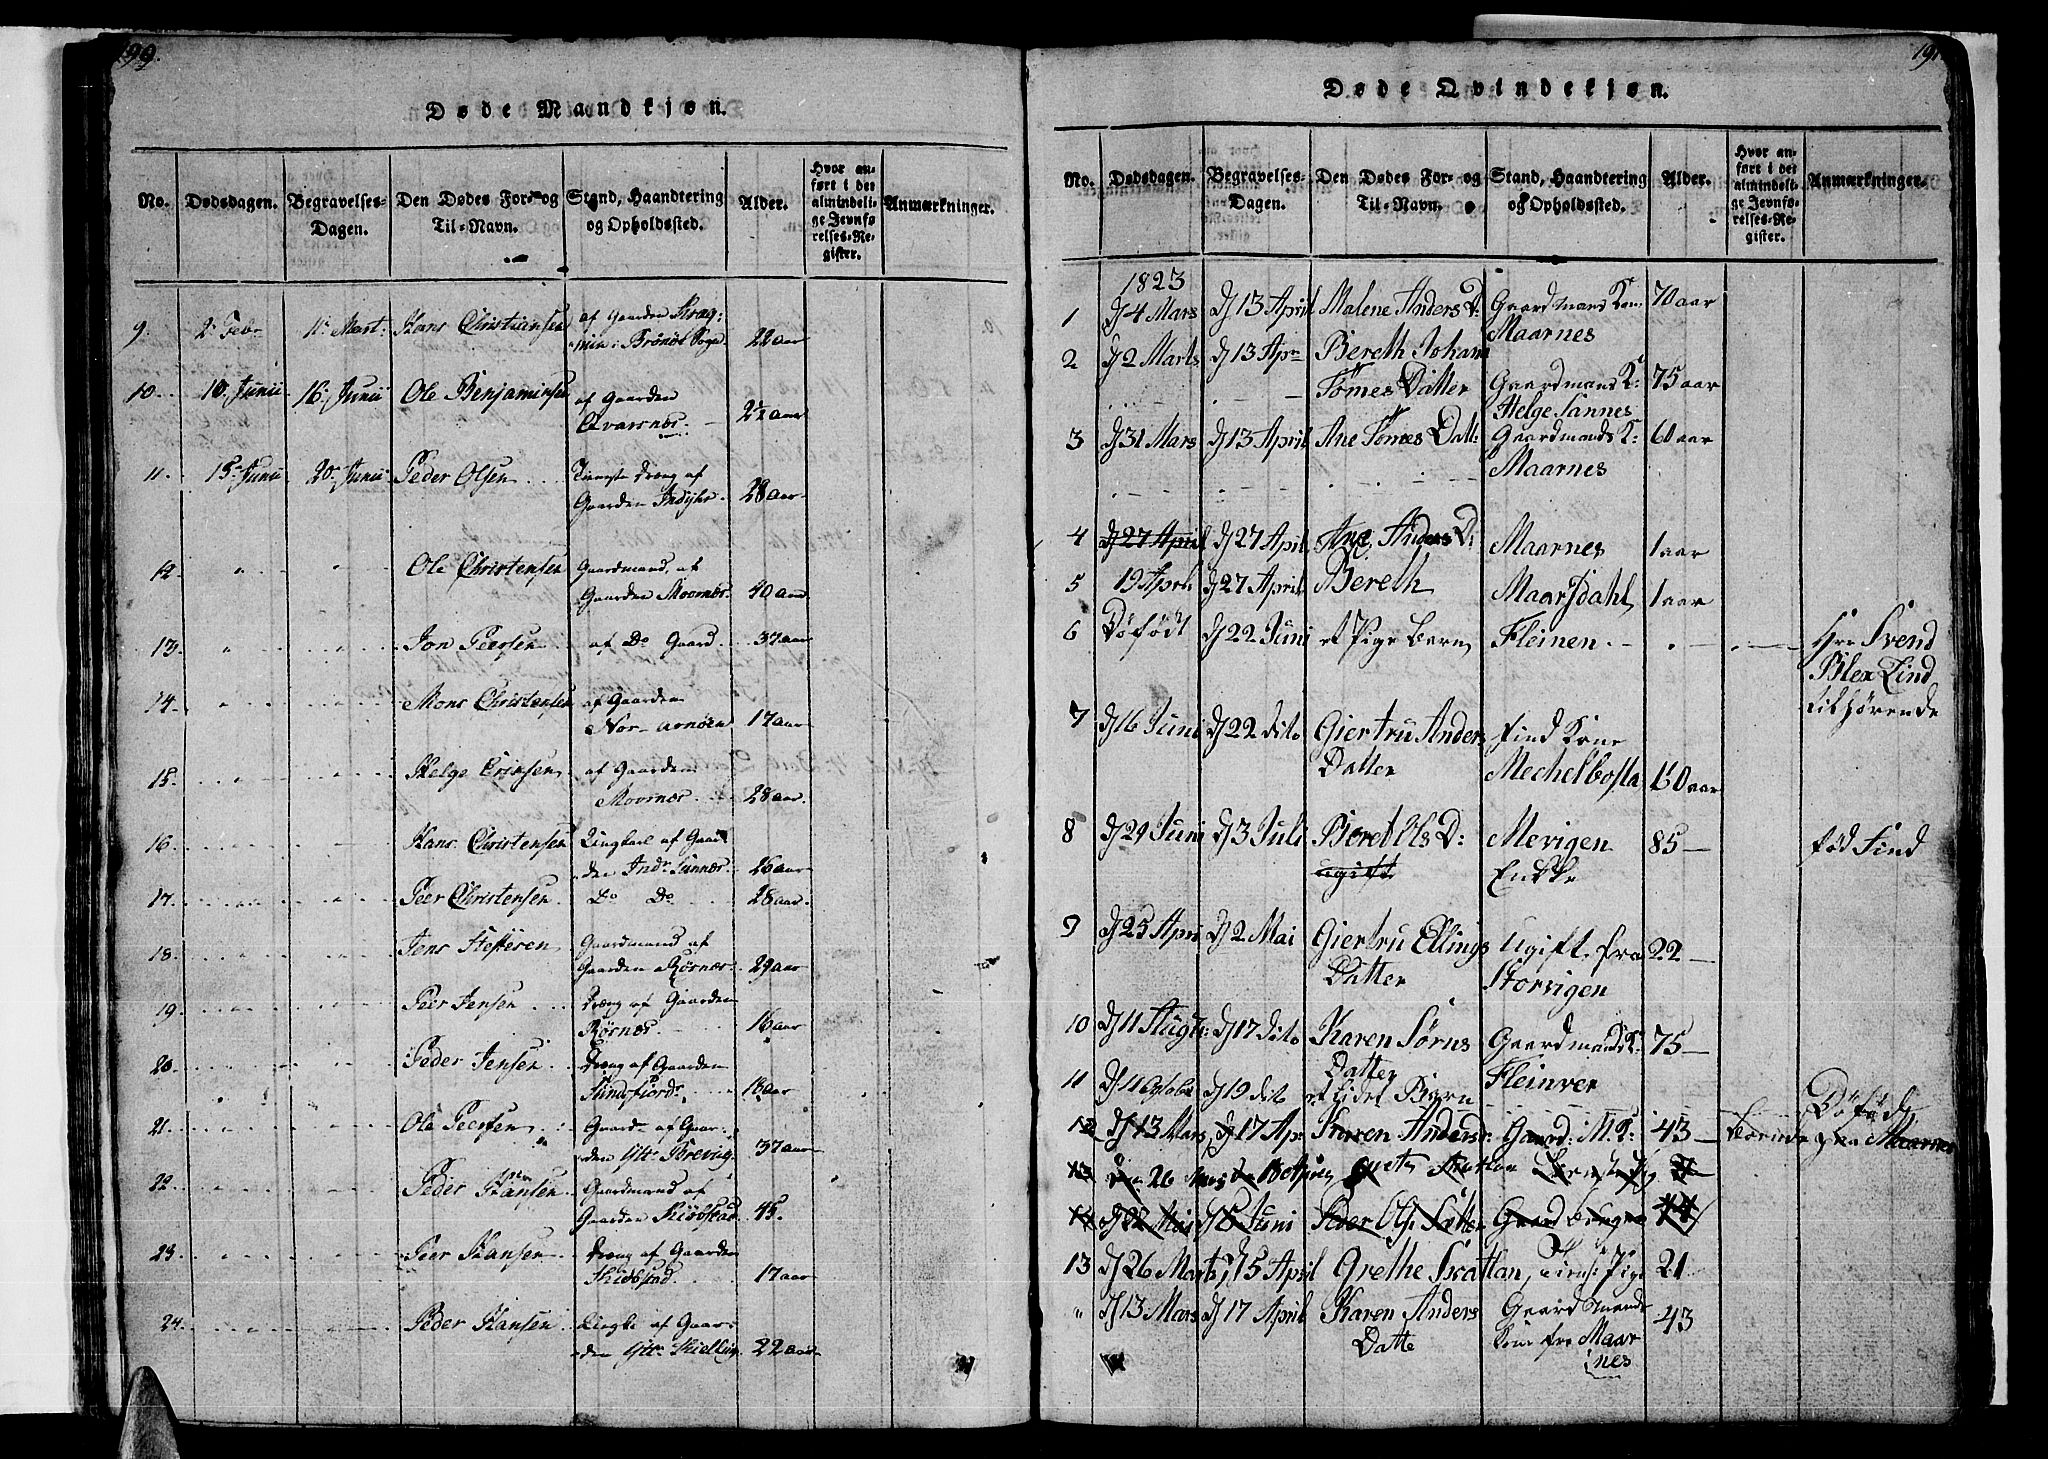 199.
Døde Mandkjøn.
No. Dødsdagen. Begravelses-Dagen. Den Dødes For- og Til-Navn. Stand, Haandtering og Opholdssted. Alder. Hvor anført i det almindelige Jevnførelses-Register. Anmærkninger.
9. 2 Feb 11 Mart: Hans Christiansen af Gaarden
i Brønøe Sogn 22 aar
10. 10. Junii 16. Junii Ole Benjaminsen af Gaarden
Qvarsnæs. 22 aar
11. 15 Junii 20. Junii Peder Olsen Dreng af
Gaarden 28 aar
12. " " Ole Christensen Gaardmand af
Gaarden Moornæs. 40 aar
13. " Jon Peersen af Do Gaard 37 aar
14. Mons Christensen af Gaarden
Nor-arnøen 17 aar
15. Helge Erichsen af Gaarden
Moornæs 28 aar.
16. Hans Christensen af Gaar
den Indr Sannæs. 26 aar
17. Peer Christensen Do Do 28 aar.
18. Jens Steffesen Gaardmand af
Gaarden Rørnæs. 29 aar
19. Peer Jensen Dreng af Gaarden
Rørnæs. 16 aar
20. Peder Jensen Dreng af Gaarden
Sundsfjord. 18 aar
21. Ole Peersen af Gaar-
den Ytt. Torevig 37 aar
22. Peder Hansen Gaardmand af
Gaarden Skibstad 45.
23. Peer Hansen Dreng af Gaarden
Skibstad. 17 aar
24. Peder Hansen af Gaar-
den Ytt. 22 aar
191
Døde Qvindekjøn.
No. Dødsdagen. Begravelses-Dagen. Den Dødes For- og Til-Navn. Stand, Haandtering og Opholdssted. Alder. Hvor anført i det almindelige Jevnførelses-Register. Anmærkninger.
1823
1 d 4 Mars d 13 April Malene Anders D: Gaardmans Kon 70 aar
Maarnes
2 d 2 Marts d 13 Apr Bereth Johan
Tomes Datter Gaardmans K: 75 aar
Helge Sannes
3 d 31 Mars d 13 April Ane Tomes Datt: Gaardmands K: 60 aar
Maarnes
4 d 27 April d 27 April Ane Anders D: Maarnes 1 aar
5 19 April d 27 April Bereth Maarsdahl 1 aar
6 Døfødt d 22 Juni et Pige barn Fleinen Hrr Svend
Blex Lind
tilhørende
7 d 16 Juni d 22 dito Giertru Anders Find Kone
Datter Mechelbosta 50 aar
8 d 29 Juni d 3 Juli Beret Ols D: Mevigen 85 fød Find
ugift Enkke
9 d 25 Apri d 2 Mai Giertru Ellings Ugift fra 22
Datter Storvigen
10 d 11 Augst: d 17 dito Karen Sørns Gaardmands K: 75
Datter Fleinver
11 d 11 Octobr d 19 dito et lidet Barn Døfød
12 d 13 Mars d 17 Apr: Karen Andersd: Gaard: M. K: 43 Maarnes
13 26 Mars
14 d 22 Mai d 8 Juni Peder Ols Datter Gaard 44
13 d 26 Marts d 15 April Grethe Skattan, Pige 21
" d 13 Mars d 17 April Karen Anders Gaard Mands 43
Datte kone fra Maar
nes